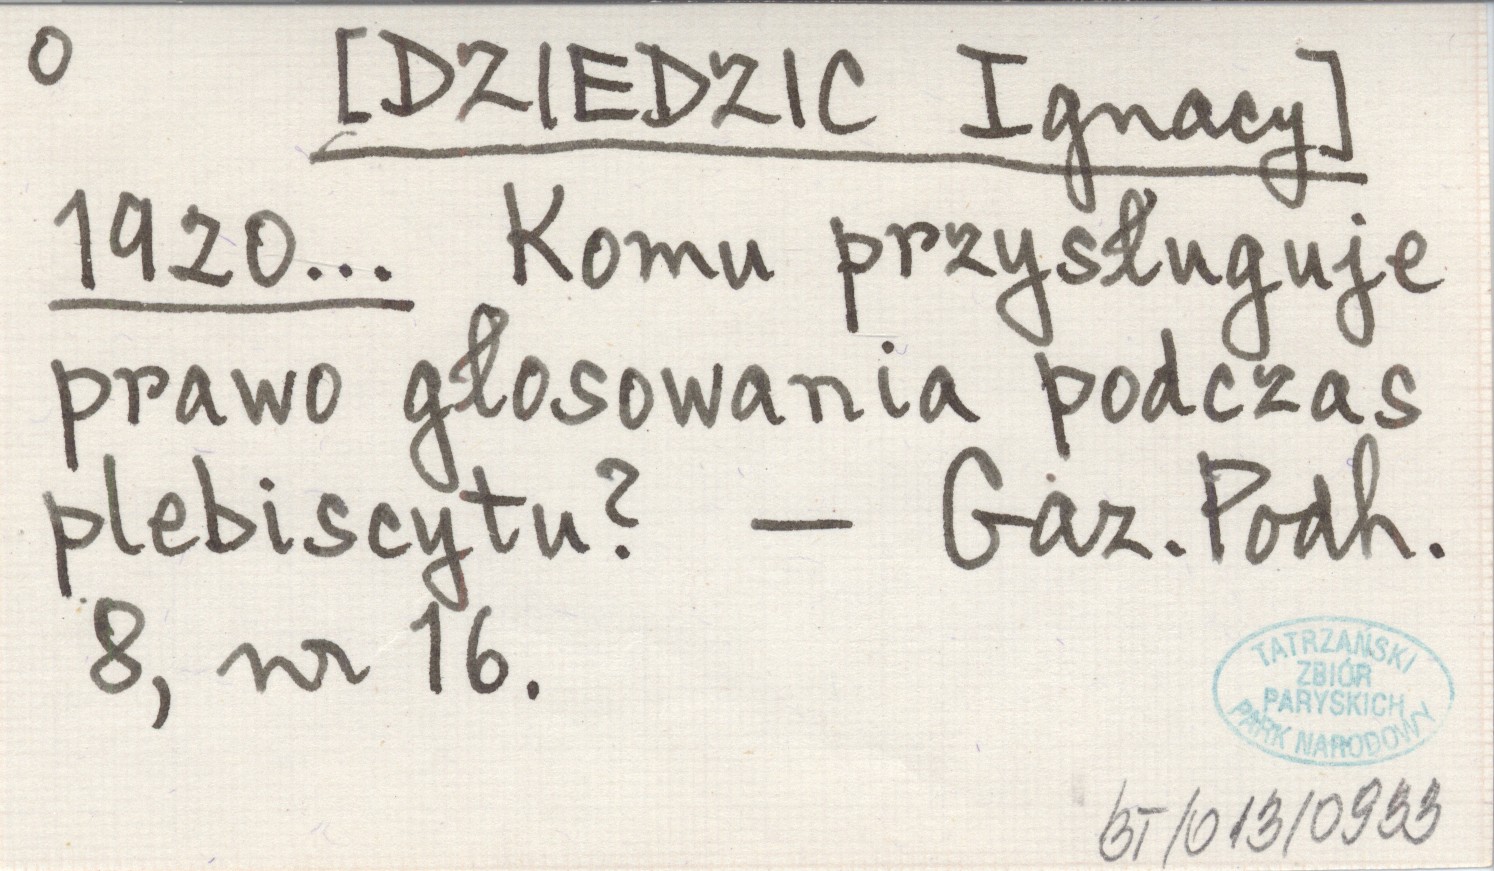 O [DZIEDZIC Ignacy]
1920... Komu przysługuje
prawo głosowania podczas
plebiscytu? — Gaz. Podh.
8, nr 16.
TATRZAŃSKI
ZBIÓR
PARYSKICH
PARK NARODOWY
BT/013/0933